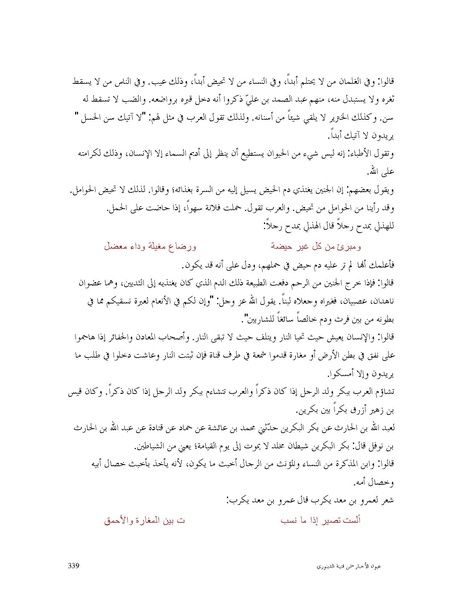 قالوا: وفي الغلمان من لا يحتلم أبداً، وفي النساء من لا تحيض أبداً، وذلك عيب. وفي الناس من لا يسقط
ثغره ولا يستبدل منه، منهم عبد الصمد بن عليّ ذكروا أنه دخل قبره برواضعه. والضب لا تسقط له
سن. وكذلك الخنزير لا يلقي شيئاً من أسنانه. ولذلك تقول العرب في مثل لهم: "لا آتيك سن الحسل "
يريدون لا آتيك أبداً.
وتقول الأطباء: إنه ليس شيء من الحيوان يستطيع أن ينظر إلى أديم السماء إلا الإنسان، وذلك لكرامته
على الله.
ويقول بعضهم: إن الجنين يغتذي دم الحيض يسيل إليه من السرة بغذائه؛ وقالوا. لذلك لا تحيض الحوامل.
وقد رأينا من الحوامل من تحيض. والعرب تقول. حملت فلانة سهواً، إذا حاضت على الحمل.
للهذلي يمدح رجلاً قال الهذلي يمدح رجلاً:
ومبرئ من كل غبر حيضة ورضاع مغيلة وداء معضل
فأعلمك أنها لم تر عليه دم حيض في حملهم، ودل على أنه قد يكون.
قالوا: فإذا خرج الجنين من الرحم دفعت الطبيعة ذلك الدم الذي كان يغتذيه إلى الثديين، وهما عضوان
ناهدان، عصبيان، فغيراه وجعلاه لبناً. يقول الله عز وجل: "وإن لكم في الأنعام لعبرة نسقيكم مما في
بطونه من بين فرث ودم خالصاً سائغاً للشاربين".
قالوا: والإنسان يعيش حيث تحيا النار ويتلف حيث لا تبقى النار. وأصحاب المعادن والحفائر إذا هاجموا
على نفق في بطن الأرض أو مغارة قدموا شمعة في طرف قناة فإن ثبتت النار وعاشت دخلوا في طلب ما
يريدون وإلا أمسكوا.
تشاؤم العرب ببكر ولد الرجل إذا كان ذكراً والعرب تتشاءم ببكر ولد الرجل إذا كان ذكراً. وكان قيس
بن زهير أزرق بكراً بين بكرين.
لعبد الله بن الحارث عن بكر البكرين حدّثني محمد بن عائشة عن حماد عن قتادة عن عبد الله بن الحارث
بن نوفل قال: بكر البكرين شيطان مخلد لا يموت إلى يوم القيامة؛ يعني من الشياطين.
قالوا: وابن المذكرة من النساء والمؤنث من الرجال أخبث ما يكون، لأنه يأخذ بأخبث خصال أبيه
وخصال أمه.
شعر لعمرو بن معد يكرب قال عمرو بن معد يكرب:
ألست تصير إذا ما نسب ت بين المغارة والأحمق
339 عيون الأخبار-ابن قتيبة الدينوري